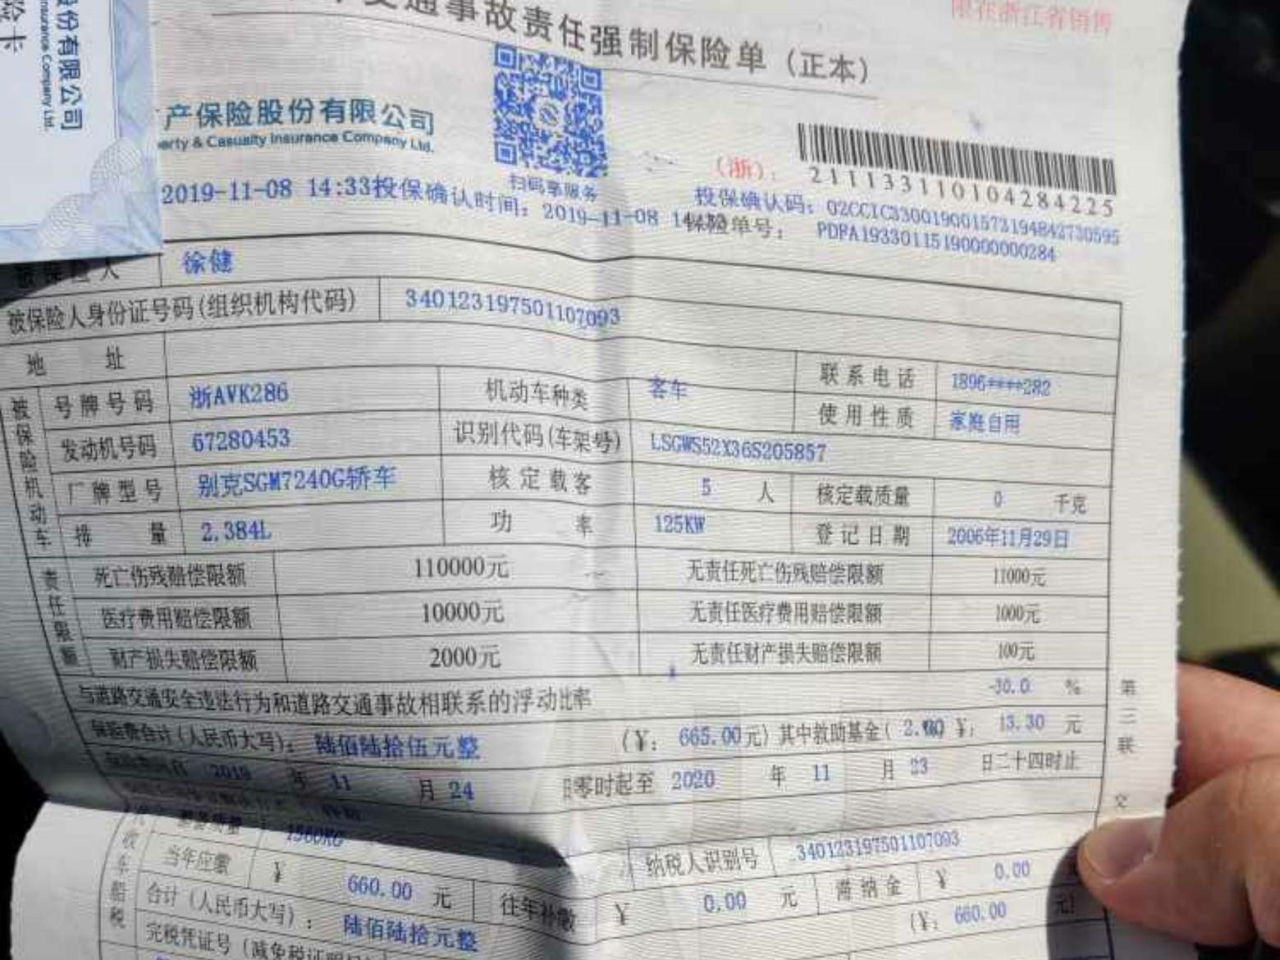 限在浙江省销售
交通事故责任强制保险单（正本）
份有限公司
surance Company Ltd.
险卡
产保险股份有限公司
erty & Casualty Insurance Company Ltd.
扫码享服务
（浙）：
21113311010428​4225
2019-11-08 14:33投保确认时间：2019-11-08 14
投保确认码：02CCIC330019001573194842730595
保险单号： PDFA19330115190000000284
被保险人 徐健
被保险人身份证号码(组织机构代码) 340123197501107093
地 址 联系电话 1896****282
被保险机动车
号牌号码 浙AVK286 机动车种类 客车 使用性质 家庭自用
发动机号码 67280453 识别代码(车架号) LSGWS52X36S205857
厂牌型号 别克SGM7240G轿车 核定载客 5 人 核定载质量 0 千克
排 量 2.384L 功 率 125KW 登记日期 2006年11月29日
责任限额
死亡伤残赔偿限额 110000元 无责任死亡伤残赔偿限额 11000元
医疗费用赔偿限额 10000元 无责任医疗费用赔偿限额 1000元
财产损失赔偿限额 2000元 无责任财产损失赔偿限额 100元
与道路交通安全违法行为和道路交通事故相联系的浮动比率 -30.0 %
保险费合计(人民币大写)： 陆佰陆拾伍元整 (￥: 665.00元) 其中救助基金( ￥: 13.30 元
2019 年 11 月 24 日零时起至 2020 年 11 月 23 日二十四时止
1560KG 纳税人识别号 340123197501107093
收车船税
当年应缴 ￥ 660.00 元 往年补缴 ￥ 0.00 元 滞纳金 ￥ 0.00
合计(人民币大写)： 陆佰陆拾元整 (￥: 660.00 元)
完税凭证号
第三联
交